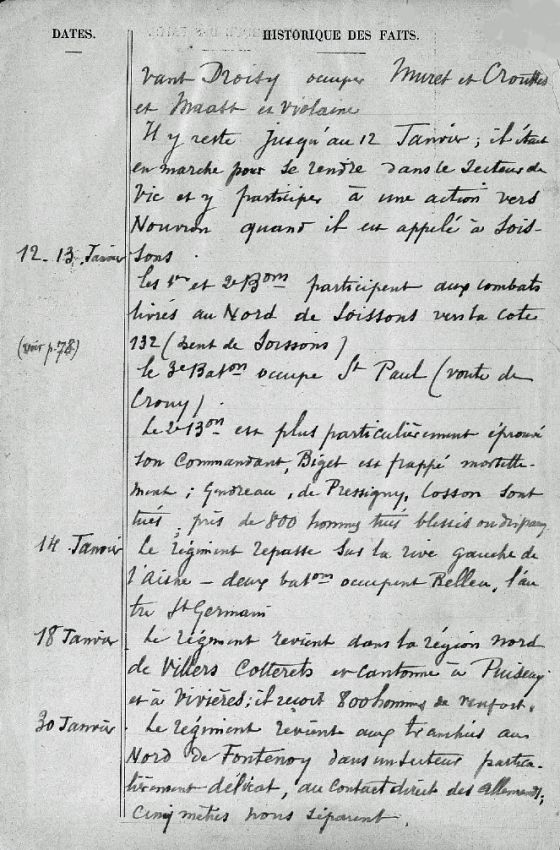 DATES. HISTORIQUE DES FAITS.
vant Droisy occuper Muret et Crouttes
et Maast et Violaine
Il y reste jusqu'au 12 Janvier ; il était
en marche pour se rendre dans le Secteur de
Vic et y participer à une action vers
Nouvron quand il est appelé à Sois-
12-13 Janvier sons
les 1er et 2e Bons participent aux combats
livrés au Nord de Soissons vers la cote
(voir p. 78) 132 (dent de Soissons)
le 3e Baton occupe St Paul (route de
Crouy)
Le 2e Bon est plus particulièrement éprouvé
son Commandant, Biget est frappé mortelle-
ment ; Gendreau, de Pressigny, Cosson sont
tués, près de 800 hommes tués blessés ou disparus
14 Janvier Le régiment repasse sur la rive gauche de
l'Aisne - deux batons occupent Belleu, l'au
tre St Germain
18 Janvier Le régiment revient dans la région Nord
de Villers Cotterets et cantonne à Puiseux
et à Vivières ; il reçoit 800 hommes de renfort.
30 Janvier Le régiment revient aux tranchées au
Nord de Fontenoy dans un secteur particu-
lièrement délicat, au contact direct des allemands ;
cinq mètres nous séparent.